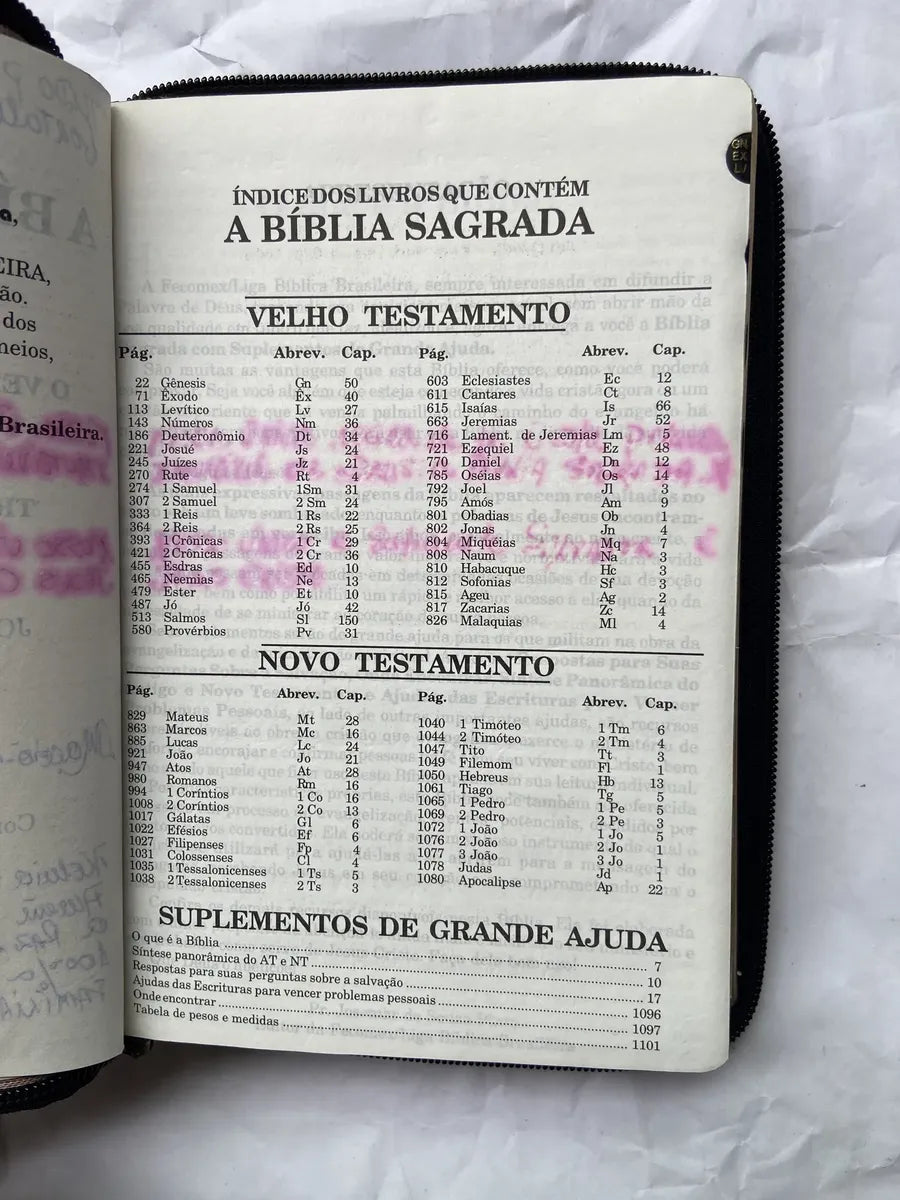 ÍNDICE DOS LIVROS QUE CONTÉM
A BÍBLIA SAGRADA
GN
EX
EIRA,
ão.
dos
neios,
Brasileira.
VELHO TESTAMENTO
Pág. Abrev. Cap. Pág. Abrev. Cap.
22 Gênesis Gn 50 603 Eclesiastes Ec 12
71 Êxodo Êx 40 611 Cantares Ct 8
113 Levítico Lv 27 615 Isaías Is 66
143 Números Nm 36 663 Jeremias Jr 52
186 Deuteronômio Dt 34 716 Lament. de Jeremias Lm 5
221 Josué Js 24 721 Ezequiel Ez 48
245 Juízes Jz 21 770 Daniel Dn 12
270 Rute Rt 4 785 Oséias Os 14
274 1 Samuel 1Sm 31 792 Joel Jl 3
307 2 Samuel 2 Sm 24 795 Amós Am 9
333 1 Reis 1 Rs 22 801 Obadias Ob 1
364 2 Reis 2 Rs 25 802 Jonas Jn 4
393 1 Crônicas 1 Cr 29 804 Miquéias Mq 7
421 2 Crônicas 2 Cr 36 808 Naum Na 3
455 Esdras Ed 10 810 Habacuque Hc 3
465 Neemias Ne 13 812 Sofonias Sf 3
479 Ester Et 10 815 Ageu Ag 2
487 Jó Jó 42 817 Zacarias Zc 14
513 Salmos Sl 150 826 Malaquias Ml 4
580 Provérbios Pv 31
NOVO TESTAMENTO
Pág. Abrev. Cap. Pág. Abrev. Cap.
829 Mateus Mt 28 1040 1 Timóteo 1 Tm 6
863 Marcos Mc 16 1044 2 Timóteo 2 Tm 4
885 Lucas Lc 24 1047 Tito Tt 3
921 João Jo 21 1049 Filemom Fl 1
947 Atos At 28 1050 Hebreus Hb 13
980 Romanos Rm 16 1061 Tiago Tg 5
994 1 Coríntios 1 Co 16 1065 1 Pedro 1 Pe 5
1008 2 Coríntios 2 Co 13 1069 2 Pedro 2 Pe 3
1017 Gálatas Gl 6 1072 1 João 1 Jo 5
1022 Efésios Ef 6 1076 2 João 2 Jo 1
1027 Filipenses Fp 4 1077 3 João 3 Jo 1
1031 Colossenses Cl 4 1078 Judas Jd 1
1035 1 Tessalonicenses 1 Ts 5 1080 Apocalipse Ap 22
1038 2 Tessalonicenses 2 Ts 3
SUPLEMENTOS DE GRANDE AJUDA
O que é a Bíblia 7
Síntese panorâmica do AT e NT 10
Respostas para suas perguntas sobre a salvação 17
Ajudas das Escrituras para vencer problemas pessoais 1096
Onde encontrar 1097
Tabela de pesos e medidas 1101